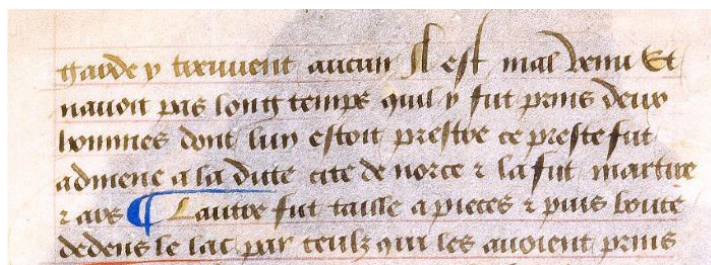 garde y treuvent aucun Il est mal venu Et
navoit pas long temps quil y fut prins deux
hommes dont lun estoit prestre ce prestre fut
admene a la dite cite de norce ⁊ la fut martire
⁊ ars ¶ Lautre fut taille a pieces ⁊ puis boute
dedens le lac par ceulz qui les avoient prins